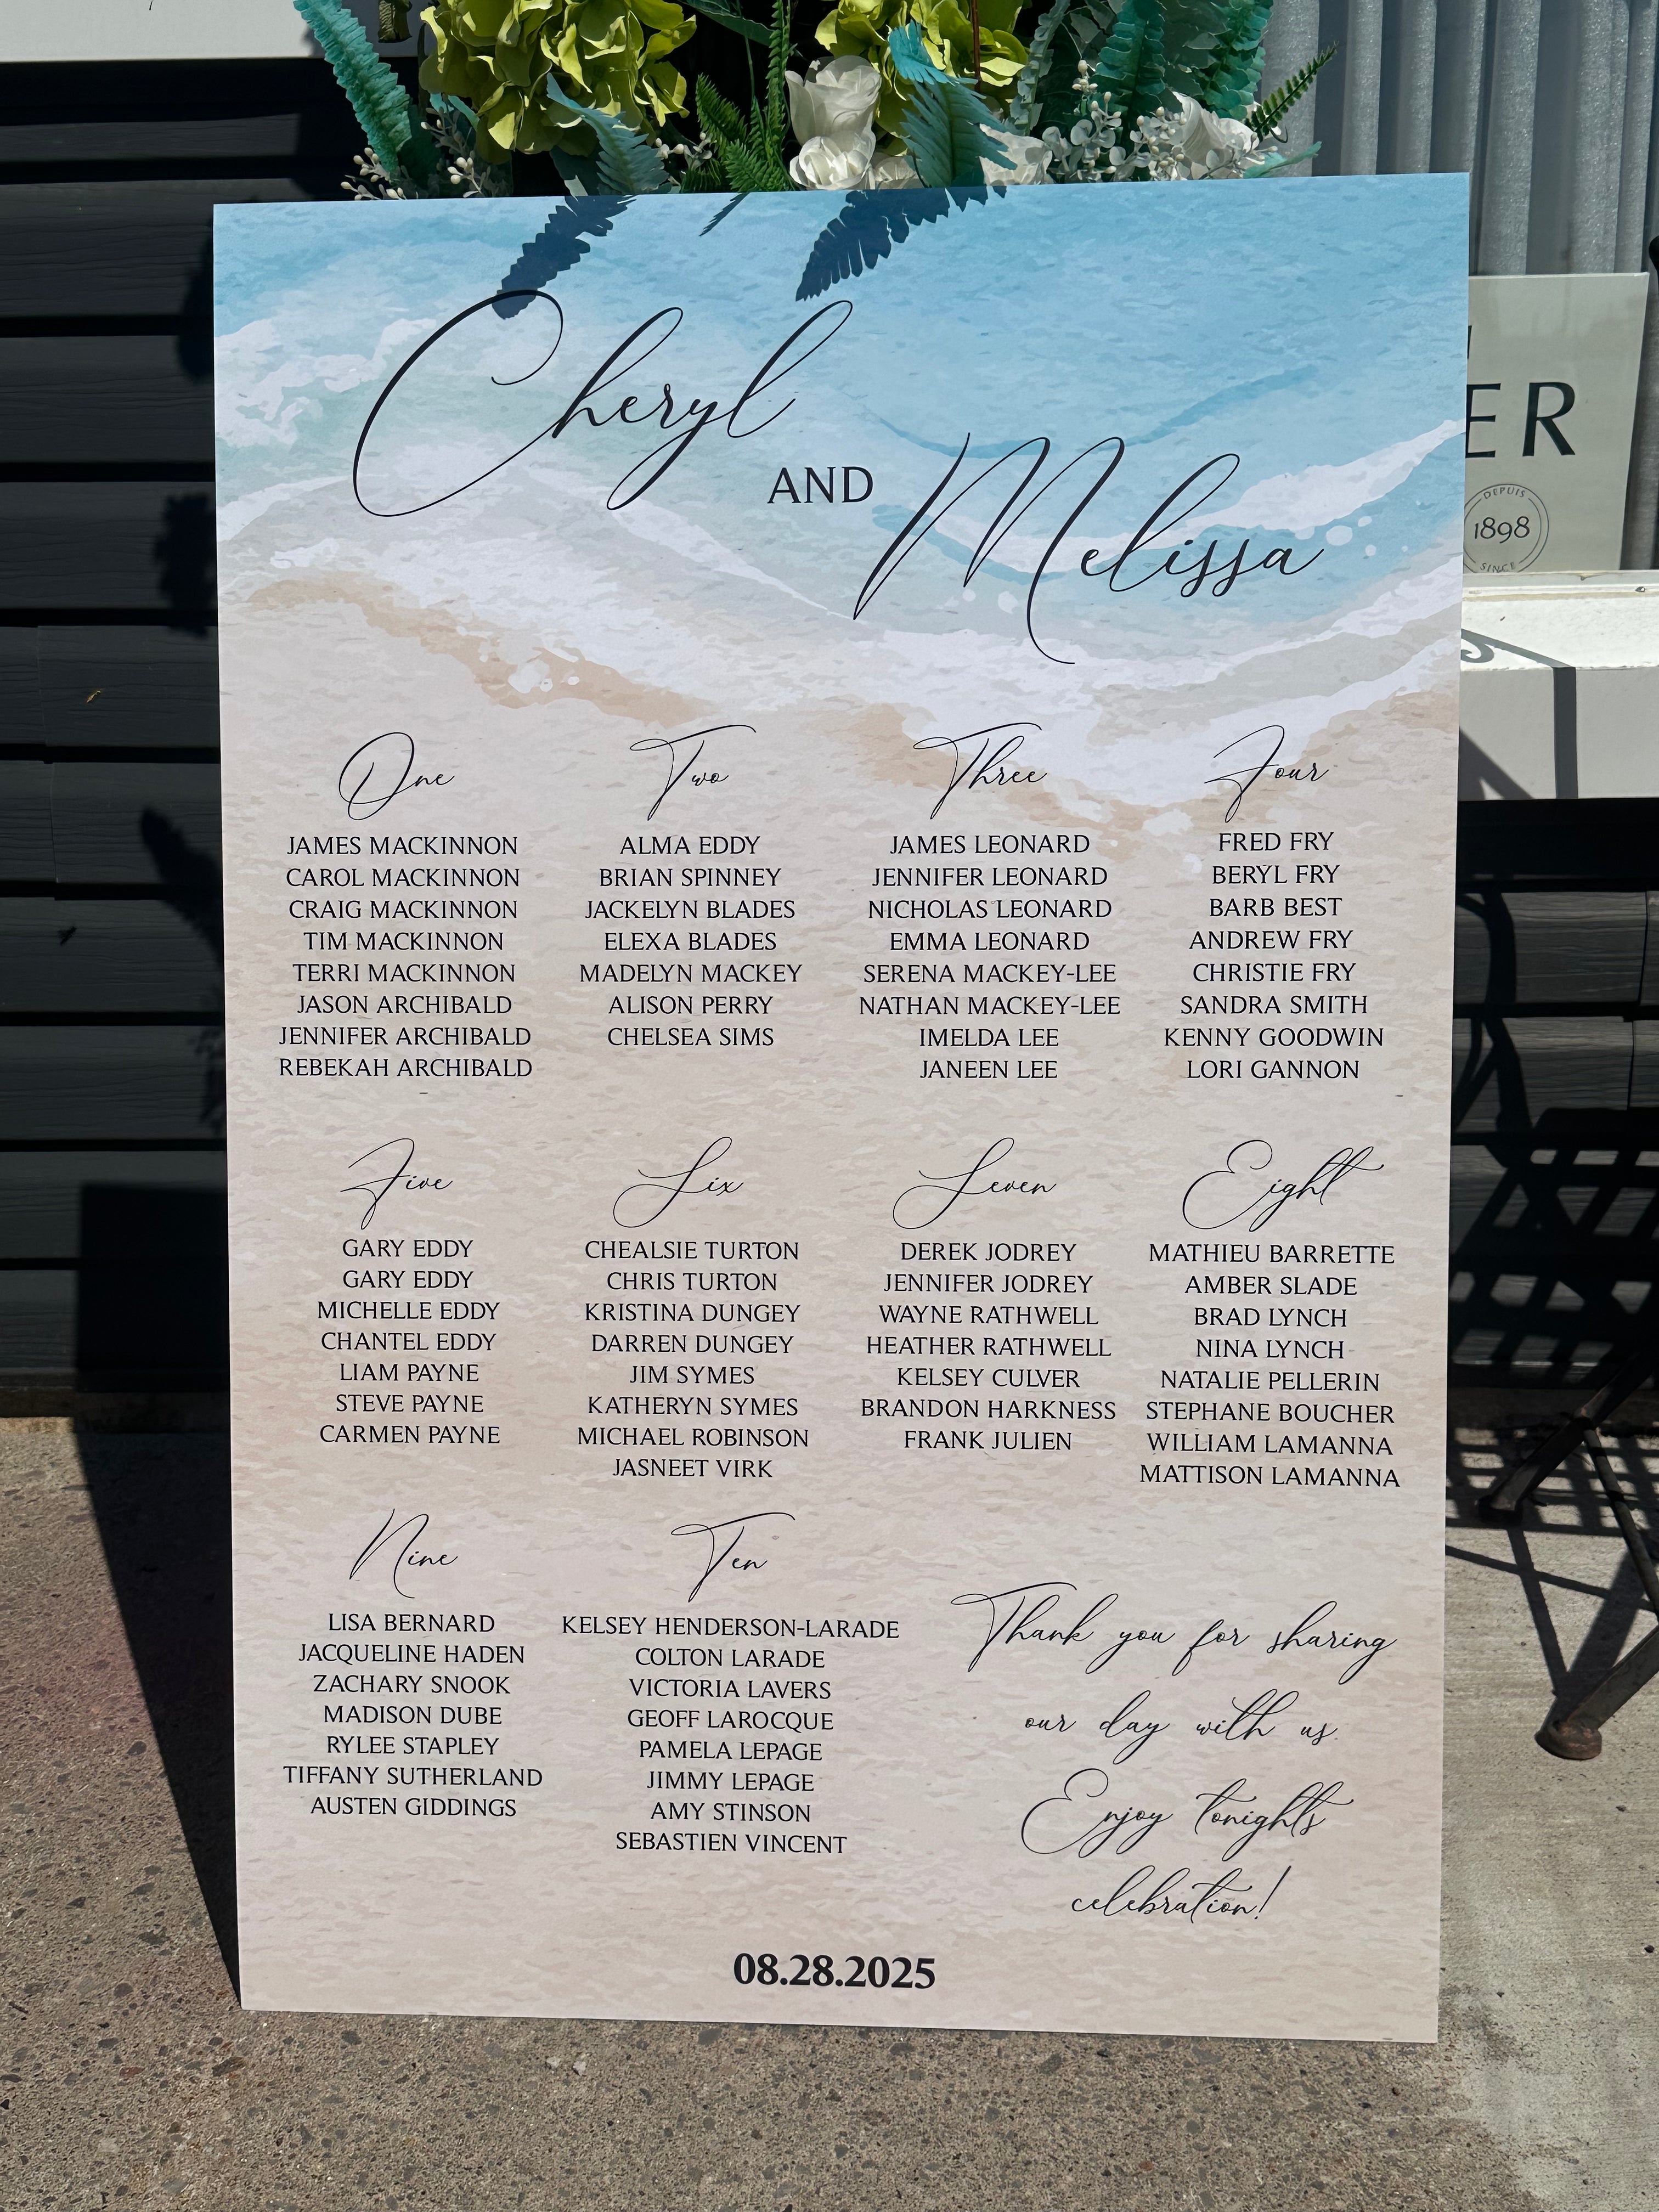 Cheryl
AND
Melissa
One
JAMES MACKINNON
CAROL MACKINNON
CRAIG MACKINNON
TIM MACKINNON
TERRI MACKINNON
JASON ARCHIBALD
JENNIFER ARCHIBALD
REBEKAH ARCHIBALD
Two
ALMA EDDY
BRIAN SPINNEY
JACKELYN BLADES
ELEXA BLADES
MADELYN MACKEY
ALISON PERRY
CHELSEA SIMS
Three
JAMES LEONARD
JENNIFER LEONARD
NICHOLAS LEONARD
EMMA LEONARD
SERENA MACKEY-LEE
NATHAN MACKEY-LEE
IMELDA LEE
JANEEN LEE
Four
FRED FRY
BERYL FRY
BARB BEST
ANDREW FRY
CHRISTIE FRY
SANDRA SMITH
KENNY GOODWIN
LORI GANNON
Five
GARY EDDY
GARY EDDY
MICHELLE EDDY
CHANTEL EDDY
LIAM PAYNE
STEVE PAYNE
CARMEN PAYNE
Six
CHEALSIE TURTON
CHRIS TURTON
KRISTINA DUNGEY
DARREN DUNGEY
JIM SYMES
KATHERYN SYMES
MICHAEL ROBINSON
JASNEET VIRK
Seven
DEREK JODREY
JENNIFER JODREY
WAYNE RATHWELL
HEATHER RATHWELL
KELSEY CULVER
BRANDON HARKNESS
FRANK JULIEN
Eight
MATHIEU BARRETTE
AMBER SLADE
BRAD LYNCH
NINA LYNCH
NATALIE PELLERIN
STEPHANE BOUCHER
WILLIAM LAMANNA
MATTISON LAMANNA
Nine
LISA BERNARD
JACQUELINE HADEN
ZACHARY SNOOK
MADISON DUBE
RYLEE STAPLEY
TIFFANY SUTHERLAND
AUSTEN GIDDINGS
Ten
KELSEY HENDERSON-LARADE
COLTON LARADE
VICTORIA LAVERS
GEOFF LAROCQUE
PAMELA LEPAGE
JIMMY LEPAGE
AMY STINSON
SEBASTIEN VINCENT
Thank you for sharing
our day with us.
Enjoy tonights
celebration!
08.28.2025
ER
DEPUIS
1898
SINCE